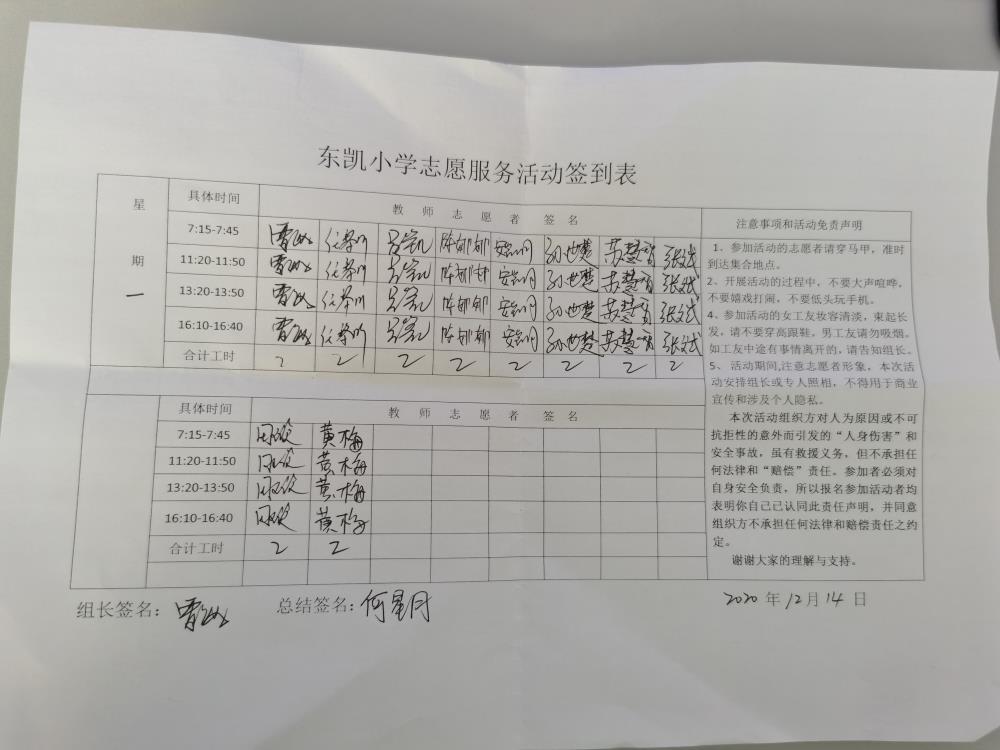 东凯小学志愿服务活动签到表
星期一
具体时间 教师志愿者签名
7:15-7:45 陈郁郁 孙世楚 苏慧智 张斌
11:20-11:50 陈郁郁 孙世楚 苏慧智 张斌
13:20-13:50 陈郁郁 孙世楚 苏慧智 张斌
16:10-16:40 陈郁郁 孙世楚 苏慧智 张斌
合计工时 2 2 2 2 2 2 2 2
具体时间 教师志愿者签名
7:15-7:45 黄梅
11:20-11:50 黄梅
13:20-13:50 黄梅
16:10-16:40 黄梅
合计工时 2 2
注意事项和活动免责声明
1、参加活动的志愿者请穿马甲，准时
到达集合地点。
2、开展活动的过程中，不要大声喧哗，
不要嬉戏打闹，不要低头玩手机。
4、参加活动的女工友妆容清淡，束起长
发，请不要穿高跟鞋，男工友请勿吸烟。
如工友中途有事情离开的，请告知组长。
5、活动期间,注意志愿者形象，本次活
动安排组长或专人照相，不得用于商业
宣传和涉及个人隐私。
本次活动组织方对人为原因或不可
抗拒性的意外而引发的“人身伤害”和
安全事故，虽有救援义务，但不承担任
何法律和“赔偿”责任。参加者必须对
自身安全负责，所以报名参加活动者均
表明你自己已认同此责任声明，并同意
组织方不承担任何法律和赔偿责任之约
定。
谢谢大家的理解与支持。
组长签名： 总结签名：何星月 2020年12月14日